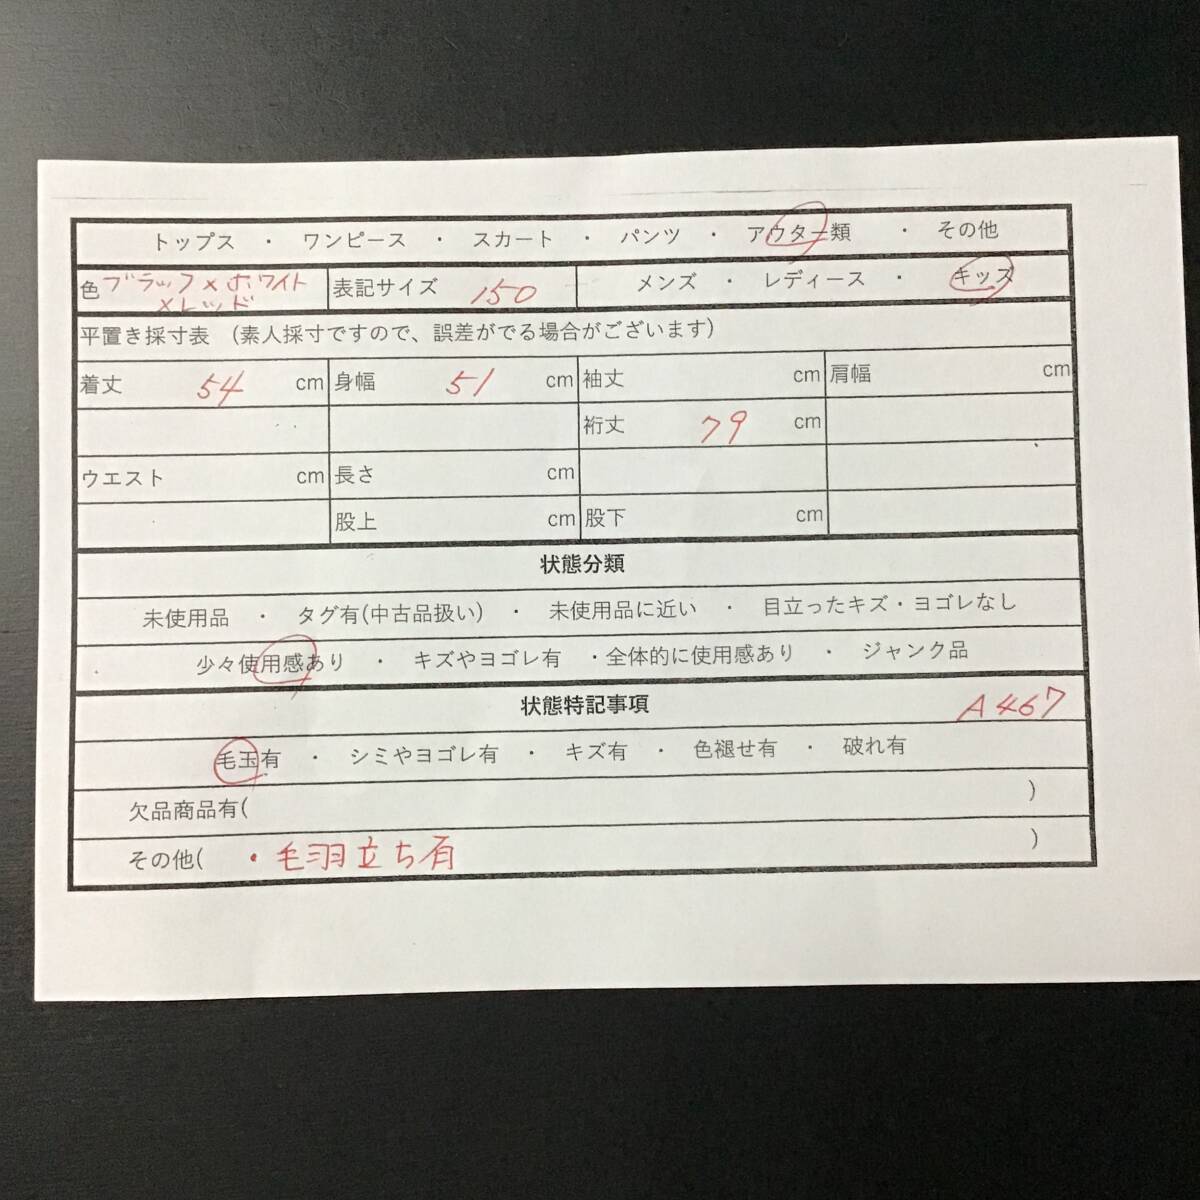 トップス ・ ワンピース ・ スカート ・ パンツ ・ アウター類 ・ その他
色 ブラック×ホワイト 表記サイズ 150 メンズ ・ レディース ・ キッズ
×レッド
平置き採寸表 (素人採寸ですので、誤差がでる場合がございます)
着丈 54 cm 身幅 51 cm 袖丈 cm 肩幅 cm
裄丈 79 cm
ウエスト cm 長さ cm
股上 cm 股下 cm
状態分類
未使用品 ・ タグ有(中古品扱い) ・ 未使用品に近い ・ 目立ったキズ・ヨゴレなし
少々使用感あり ・ キズやヨゴレ有 ・全体的に使用感あり ・ ジャンク品
状態特記事項 A467
毛玉有 ・ シミやヨゴレ有 ・ キズ有 ・ 色褪せ有 ・ 破れ有
欠品商品有( )
その他( ・毛羽立ち有 )